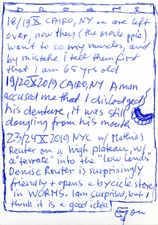 DREAMS
18/19 X CAIRO, NY we are left
over, now they (the movie ppl)
went to my muscles, and
by mistake I tell them first
that I am 65 yrs old
19/20 X 2019 CAIRO, NY A man
accused me that I dislodged
his denture, it was still
dangling from his mouth
23/24 X 2019 NYC w/ Mathias
Reuter on a high plateau, w/
a "terrace" into the "low lands"
Denise Reuter is surprisingly
friendly + opens a bycicle store
in WORMS. I am surprised, but I
think it is a good idea!